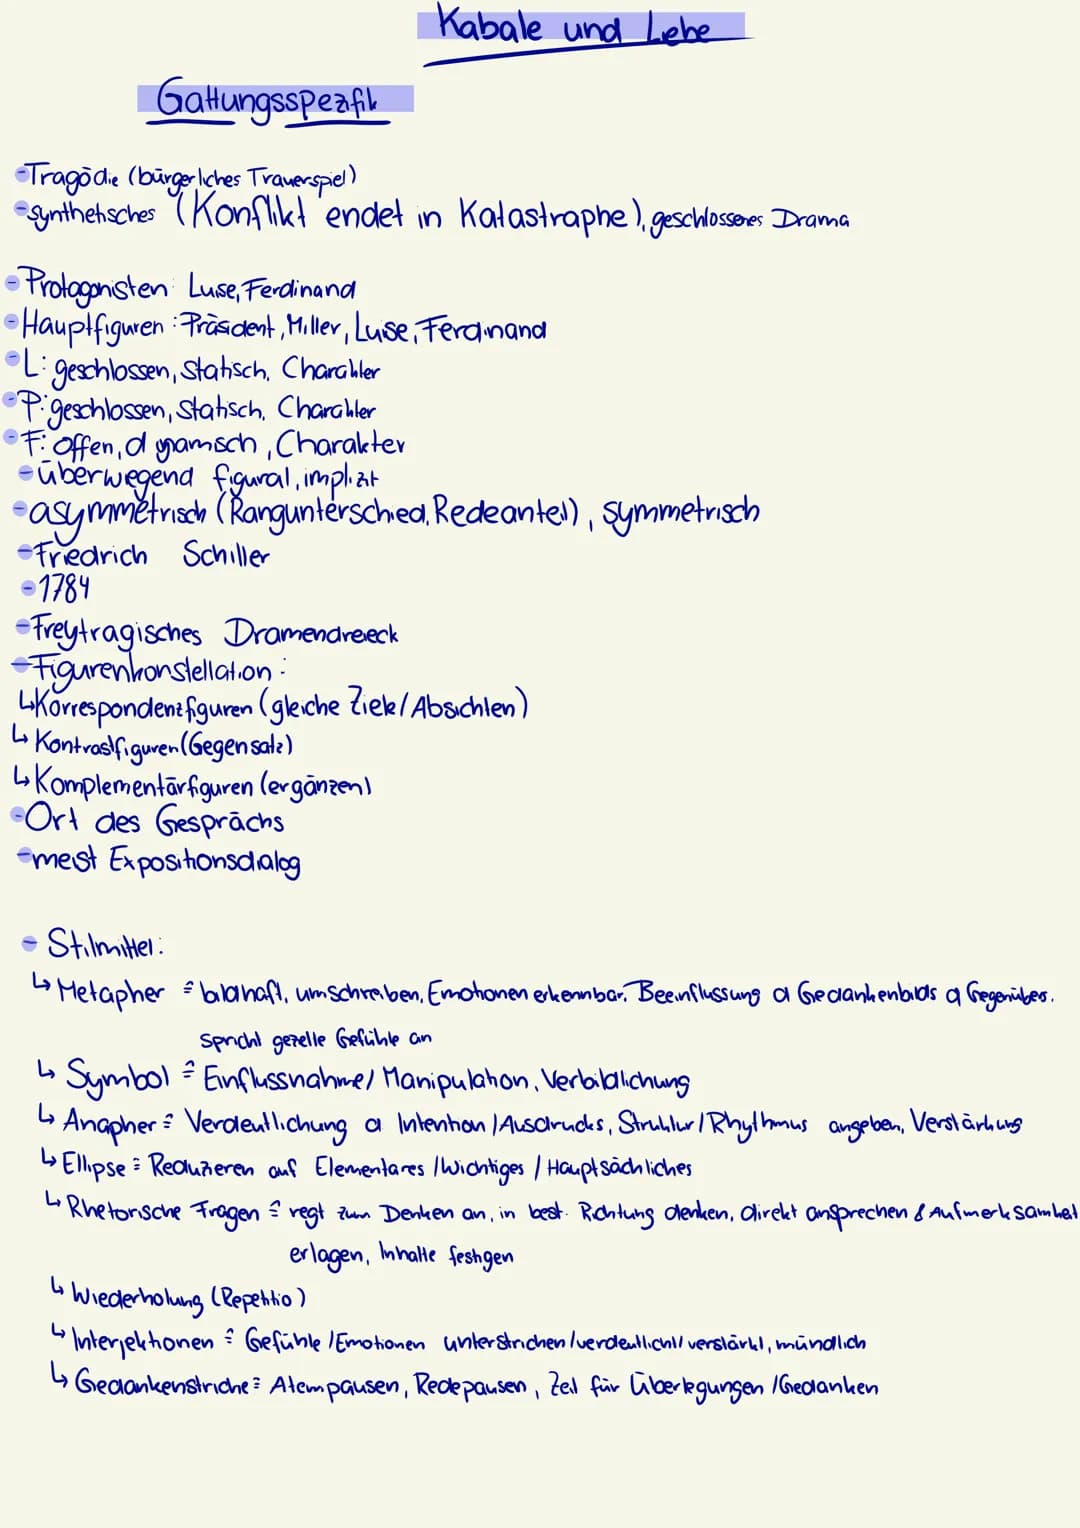 Kabale und Liebe
Gattungsspezifik
- Tragödie (bürgerliches Trauerspiel)
- synthetisches (Konflikt endet in Katastraphe), geschlossenes Drama
- Protagonisten: Luise, Ferdinand
- Hauptfiguren: Präsident, Miller, Luise, Ferdinand
- L: geschlossen, statisch, Charakter
- P: geschlossen, statisch, Charakter
- F: offen, dynamisch, Charakter
- überwiegend figural, implizit
- asymmetrisch (Rangunterschied, Redeanteil), symmetrisch
- Friedrich Schiller
- 1784
- Freytragisches Dramendreieck
- Figurenkonstellation:
↳ Korrespondenzfiguren (gleiche Ziele/Absichten)
↳ Kontrastfiguren (Gegensatz)
↳ Komplementärfiguren (ergänzen)
- Ort des Gesprächs
- meist Expositionsdialog
- Stilmittel:
↳ Metapher ≙ bildhaft, umschreiben, Emotionen erkennbar, Beeinflussung d Gedankenbilds d Gegenübers,
spricht gezielle Gefühle an
↳ Symbol ≙ Einflussnahme/Manipulation, Verbildlichung
↳ Anapher ≙ Verdeutlichung d Intention/Ausdrucks, Struktur/Rhythmus angeben, Verstärkung
↳ Ellipse ≙ Reduzieren auf Elementares/Wichtiges/Hauptsächliches
↳ Rhetorische Fragen ≙ regt zum Denken an, in best. Richtung denken, direkt ansprechen & Aufmerksamkeit
erlagen, Inhalte festigen
↳ Wiederholung (Repetitio)
↳ Interjektionen ≙ Gefühle/Emotionen unterstrichen/verdeutlicht/verstärkt, mündlich
↳ Gedankenstriche ≙ Atempausen, Redepausen, Zeit für Überlegungen/Gedanken